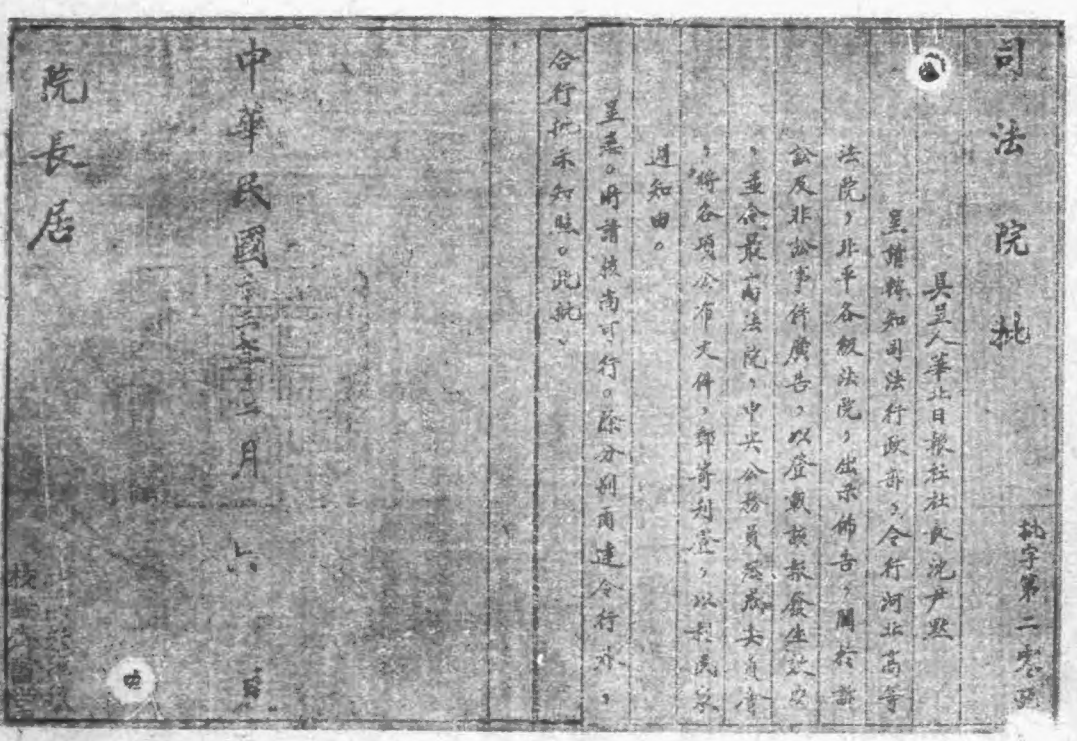 司法院批
批字第二零號
具呈人華北日報社社長沈尹默
呈請轉知司法行政部,令行河北高等
法院,北平各級法院,出示佈告,關於訴
訟及非訟事件廣告,以登載該報發生效力
,並令最高法院,中央公務員懲戒委員會
,將各項公布文件,郵寄刊登,以利民眾
週知由。
呈悉。所請核尚可行。除分別函達令行外,
合行批示知照。此批、
中華民國二十二年十二月六日
院長居